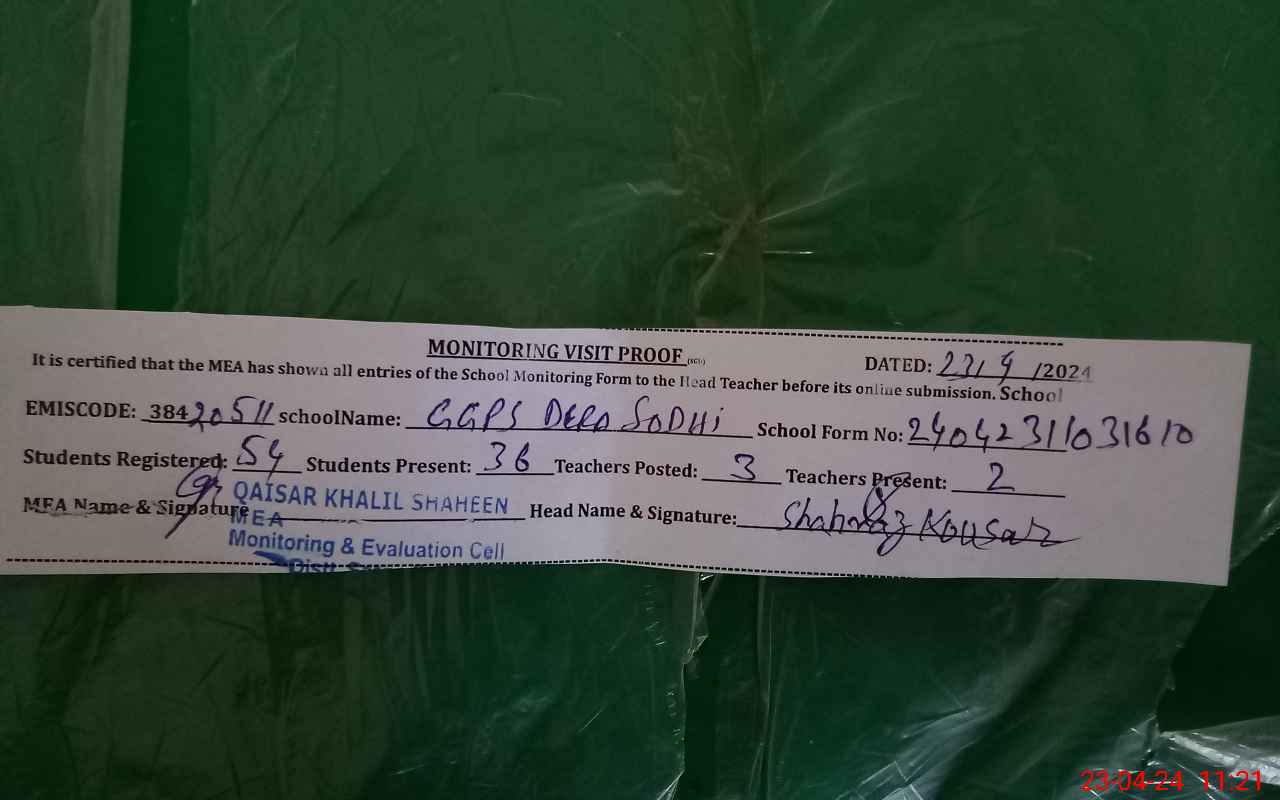 MONITORING VISIT PROOF
DATED: 23/4/2024
It is certified that the MEA has shown all entries of the School Monitoring Form to the Head Teacher before its online submission. School
EMISCODE: 38420511 schoolName: GGPS DERA SODHi School Form No: 24042311031610
Students Registered: 54 Students Present: 36 Teachers Posted: 3 Teachers Present: 2
MEA Name & Signature QAISAR KHALIL SHAHEEN Head Name & Signature: Shahnaz Kousar
MEA
Monitoring & Evaluation Cell
Distt
23-04-24 11:21